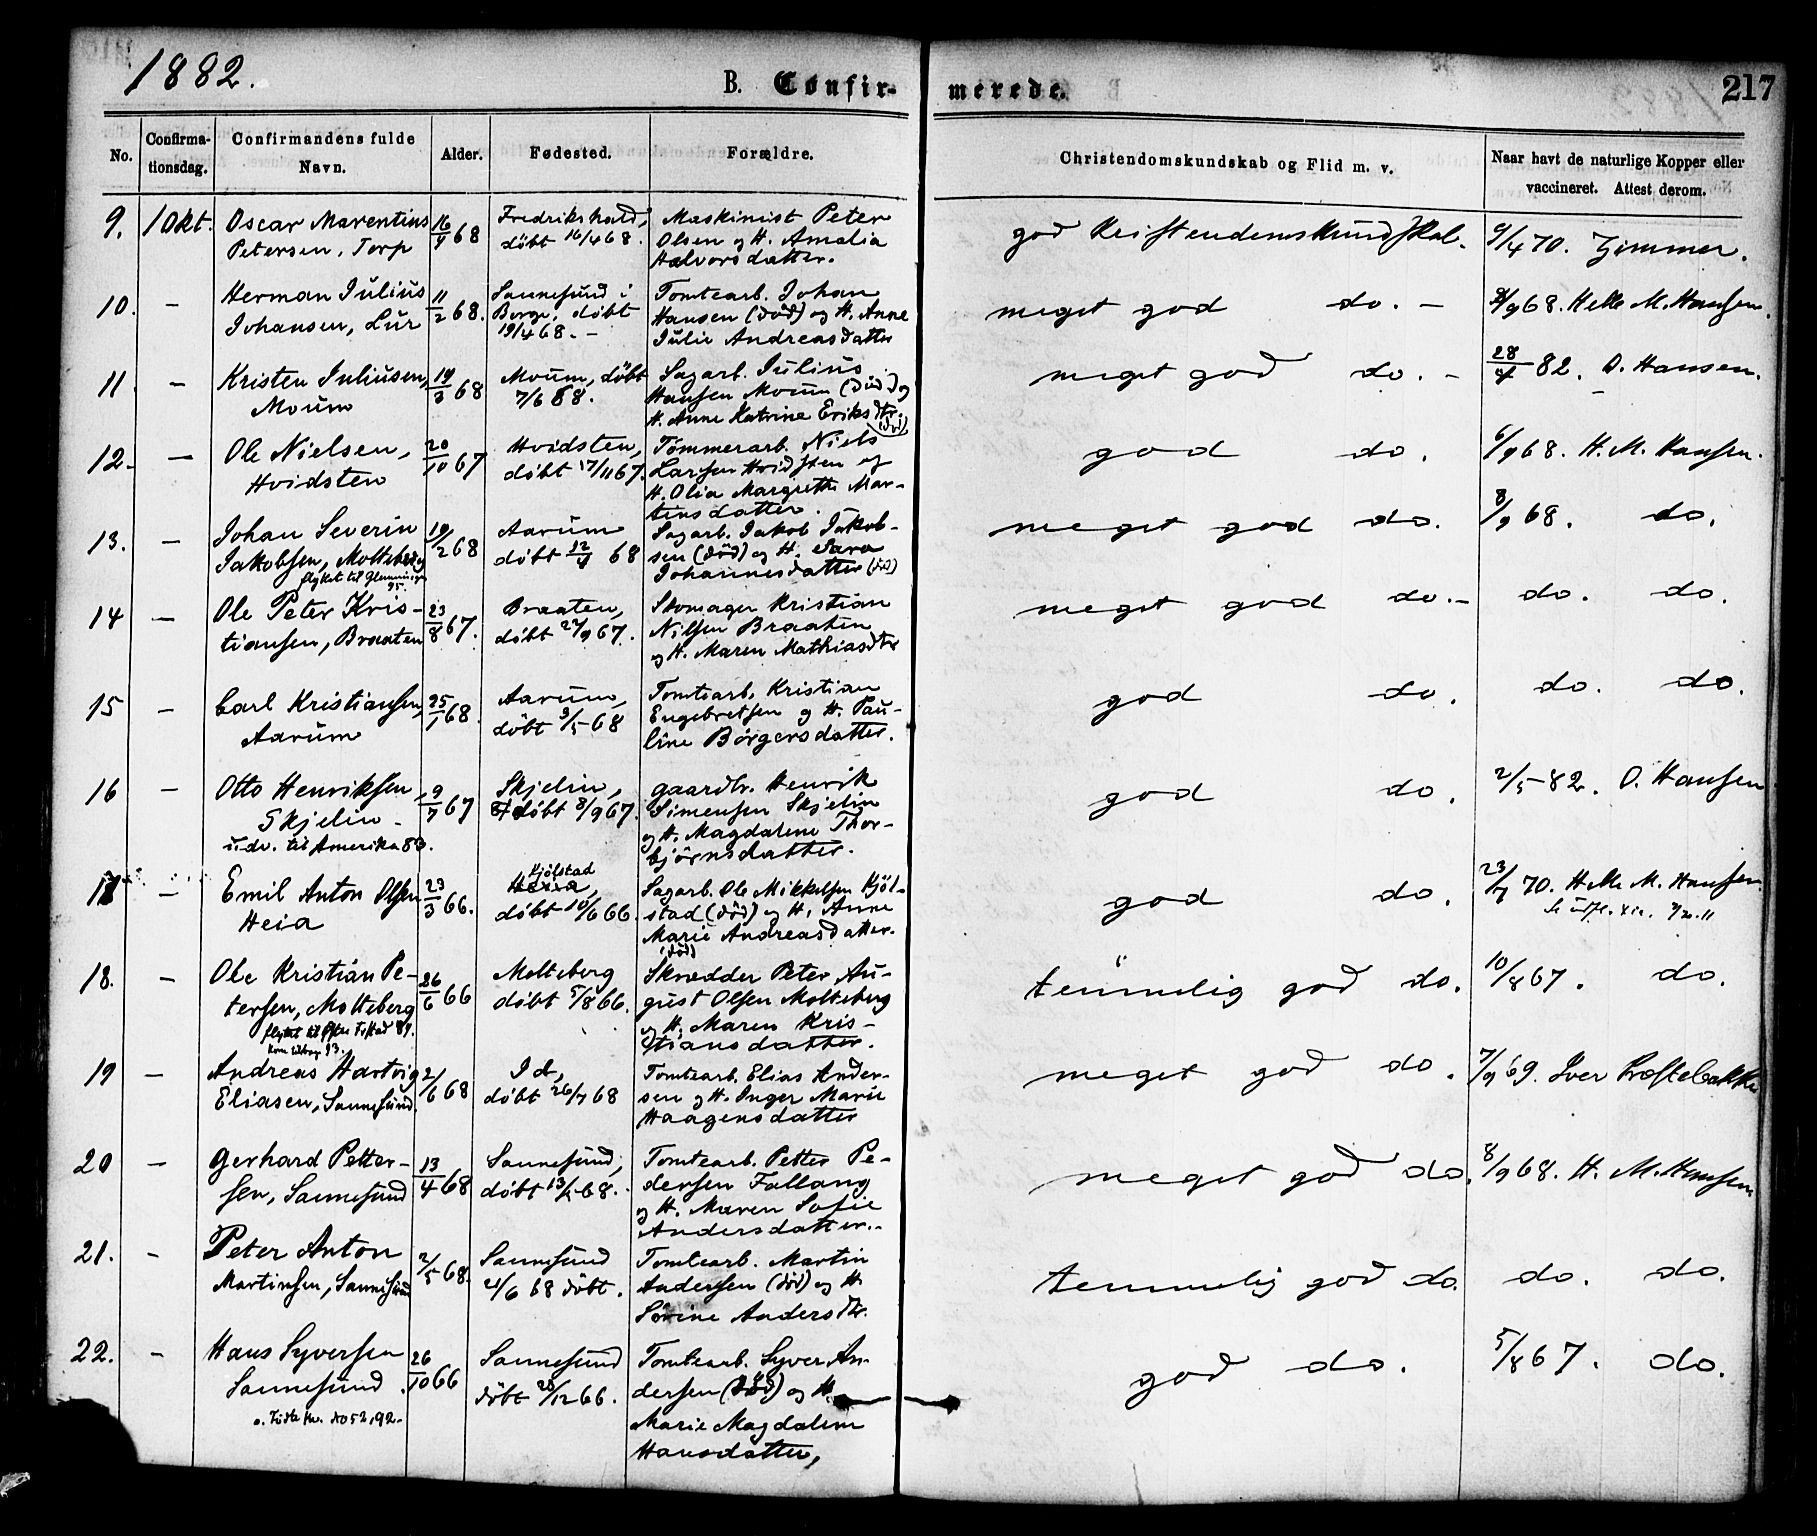 1882.
B. Confir-merede.
217
No.
Confirma-
tionsdag.
Confirmandens fulde
Navn.
Alder.
Fødested.
Forældre.
Christendomskundskab og Flid m. v.
Naar havt de naturlige Kopper eller
vaccineret. Attest derom.
9. 1 Okt. Oscar Marentius 16/4 68 Fredrikshald, Maskinist Peter god Kristendomskundskab. 9/4 70. Zimmer.
Petersen, Torp døbt 16/4 68. Olsen og H. Amalia
Halvorsdatter.
10. – Herman Julius 11/2 68. Sannesund i Tomtearb. Johan meget god do. – 8/9 68. Helle M. Hansen.
Johansen, Lur Borge, døbt Hansen (død) og H. Anne
19/4 68. – Julie Andreasdatter
11. – Kristen Juliusen, 19/3 68 Moum, døbt Sagarb. Julius meget god do. – 28/4 82. O. Hansen.
Moum 7/6 68. Hansen Moum (død) og
H. Anne Katrine Eriksdtr.
(død)
12. – Ole Nielsen, 20/10 67 Hvidsten, Tømmerarb. Niels god do. 6/9 68. H. M. Hansen.
Hvidsten døbt 17/11 67. Larsen Hvidsten og
H. Olia Margrethe Mar-
tinsdatter.
13. – Johan Severin 19/2 68 Aarum Sagarb. Jakob Jakob- meget god do. 8/9 68. do.
Jakobsen, Molteberg døbt 12/4 68 sen (død) og H. Sara
flyttet til Glemminge Johannesdatter (død)
95.
14 – Ole Peter Kris- 23/8 67. Braaten, Skomager Kristian meget god do. – do. do.
tiansen, Braaten døbt 27/9 67. Nilsen Braaten
og H. Maren Mathiasdtr
15 – Carl Kristiansen, 25/1 68. Aarum, Tomtearb. Kristian god do. do. do.
Aarum døbt 3/5 68 Engebretsen og H. Pau-
line Børgersdatter.
16 – Otto Henriksen, 9/7 67 Skjelin, gaardbr. Henrik god do. 2/5 82. O. Hansen
Skjelin – døbt 8/9 67. Simensen Skjelin
udv. til Amerika 83. og H. Magdalene Thor-
bjørnsdatter.
17 – Emil Anton Olsen 23/3 66. Kjølstad Sagarb. Ole Mikkelsen Kjøl- god do. 23/7 70. Helle M. Hansen
Heia Heia, stad (død) og H. Anne
døbt 10/6 66 Marie Andreasdatter.
(død)
18. – Ole Kristian Pe- 26/6 66 Molteberg Skrædder Peter Au- temmelig god do. 10/8 67. do.
tersen, Molteberg døbt 5/8 66. gust Olsen Molteberg
og H. Maren Kris-
tiansdatter.
19 – Andreas Hartvig 2/6 68 Id, Tomtearb. Elias Ander- meget god do. 7/9 69. Iver Præstebakke
Eliasen, Sannesund. døbt 26/7 68 sen og H. Inger Marie
Haagensdatter
20 – Gerhard Petter- 13/4 68 Sannesund, Tomtearb. Petter Pe- meget god do. 8/9 68. H. M. Hansen
sen, Sannesund døbt 13/5 68. dersen Fallang
og H. Maren Sofie
Andersdatter. –
21. – Peter Anton 2/5 68. Sannesund Tomtearb. Martin temmelig god do. do. do.
Martinsen, Sannesund 21/6 68 døbt. Andersen (død) og H.
Sørine Andersdtr.
22. – Hans Syversen 26/10 66 Sannesund Tomtearb. Syver An- god do. 5/8 67. do.
Sannesund. døbt 26/12 66. dersen (død) og H.
Marie Magdalene
Hansdatter,